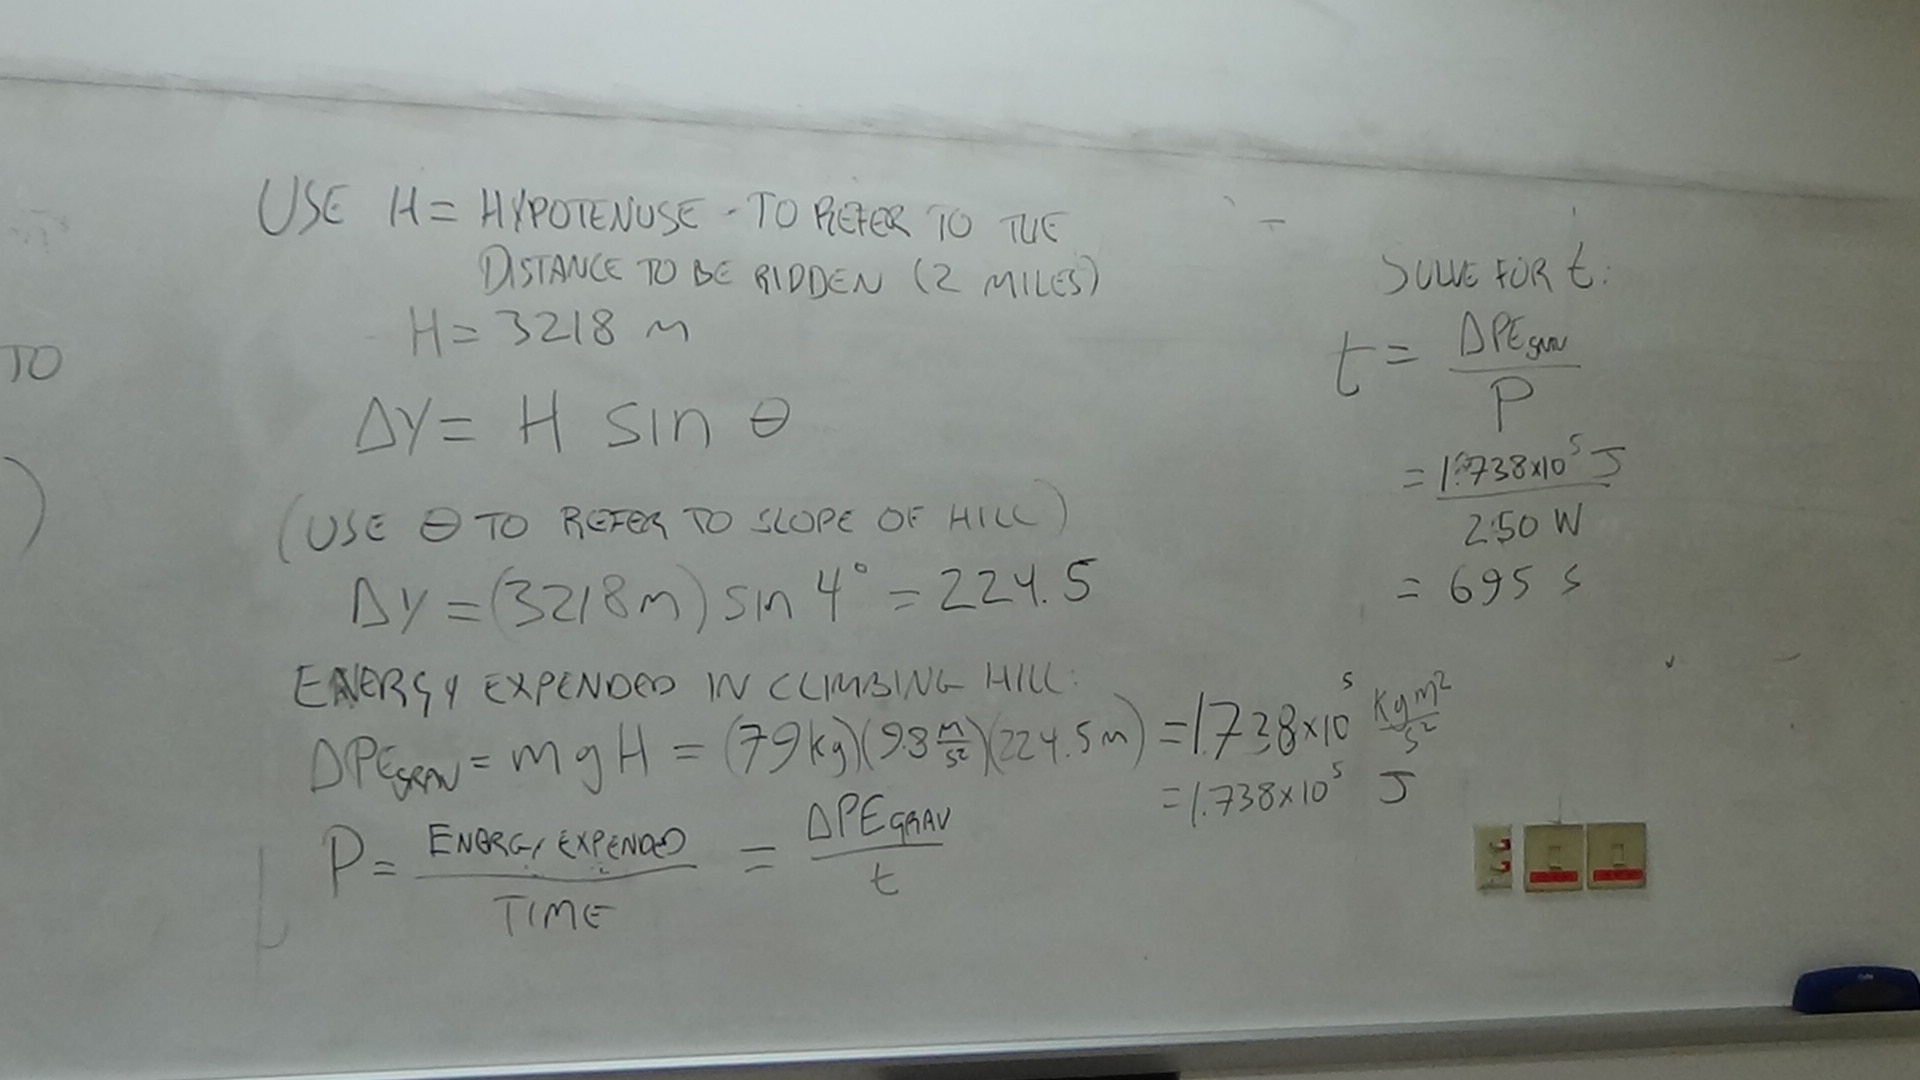 TO
)
USE H = HYPOTENUSE - TO REFER TO THE
DISTANCE TO BE RIDDEN (2 MILES)
H = 3218 m
ΔY = H sin θ
(USE θ TO REFER TO SLOPE OF HILL)
ΔY = (3218m) sin 4° = 224.5
ENERGY EXPENDED IN CLIMBING HILL:
ΔPE_GRAV = mgH = (79kg)(9.8 m/s²)(224.5m) = 1.738×10⁵ kgm²/s²
= 1.738×10⁵ J
P = ENERGY EXPENDED / TIME = ΔPE_GRAV / t
SOLVE FOR t:
t = ΔPE_GRAV / P
= 1.738×10⁵ J / 250 W
= 695 s